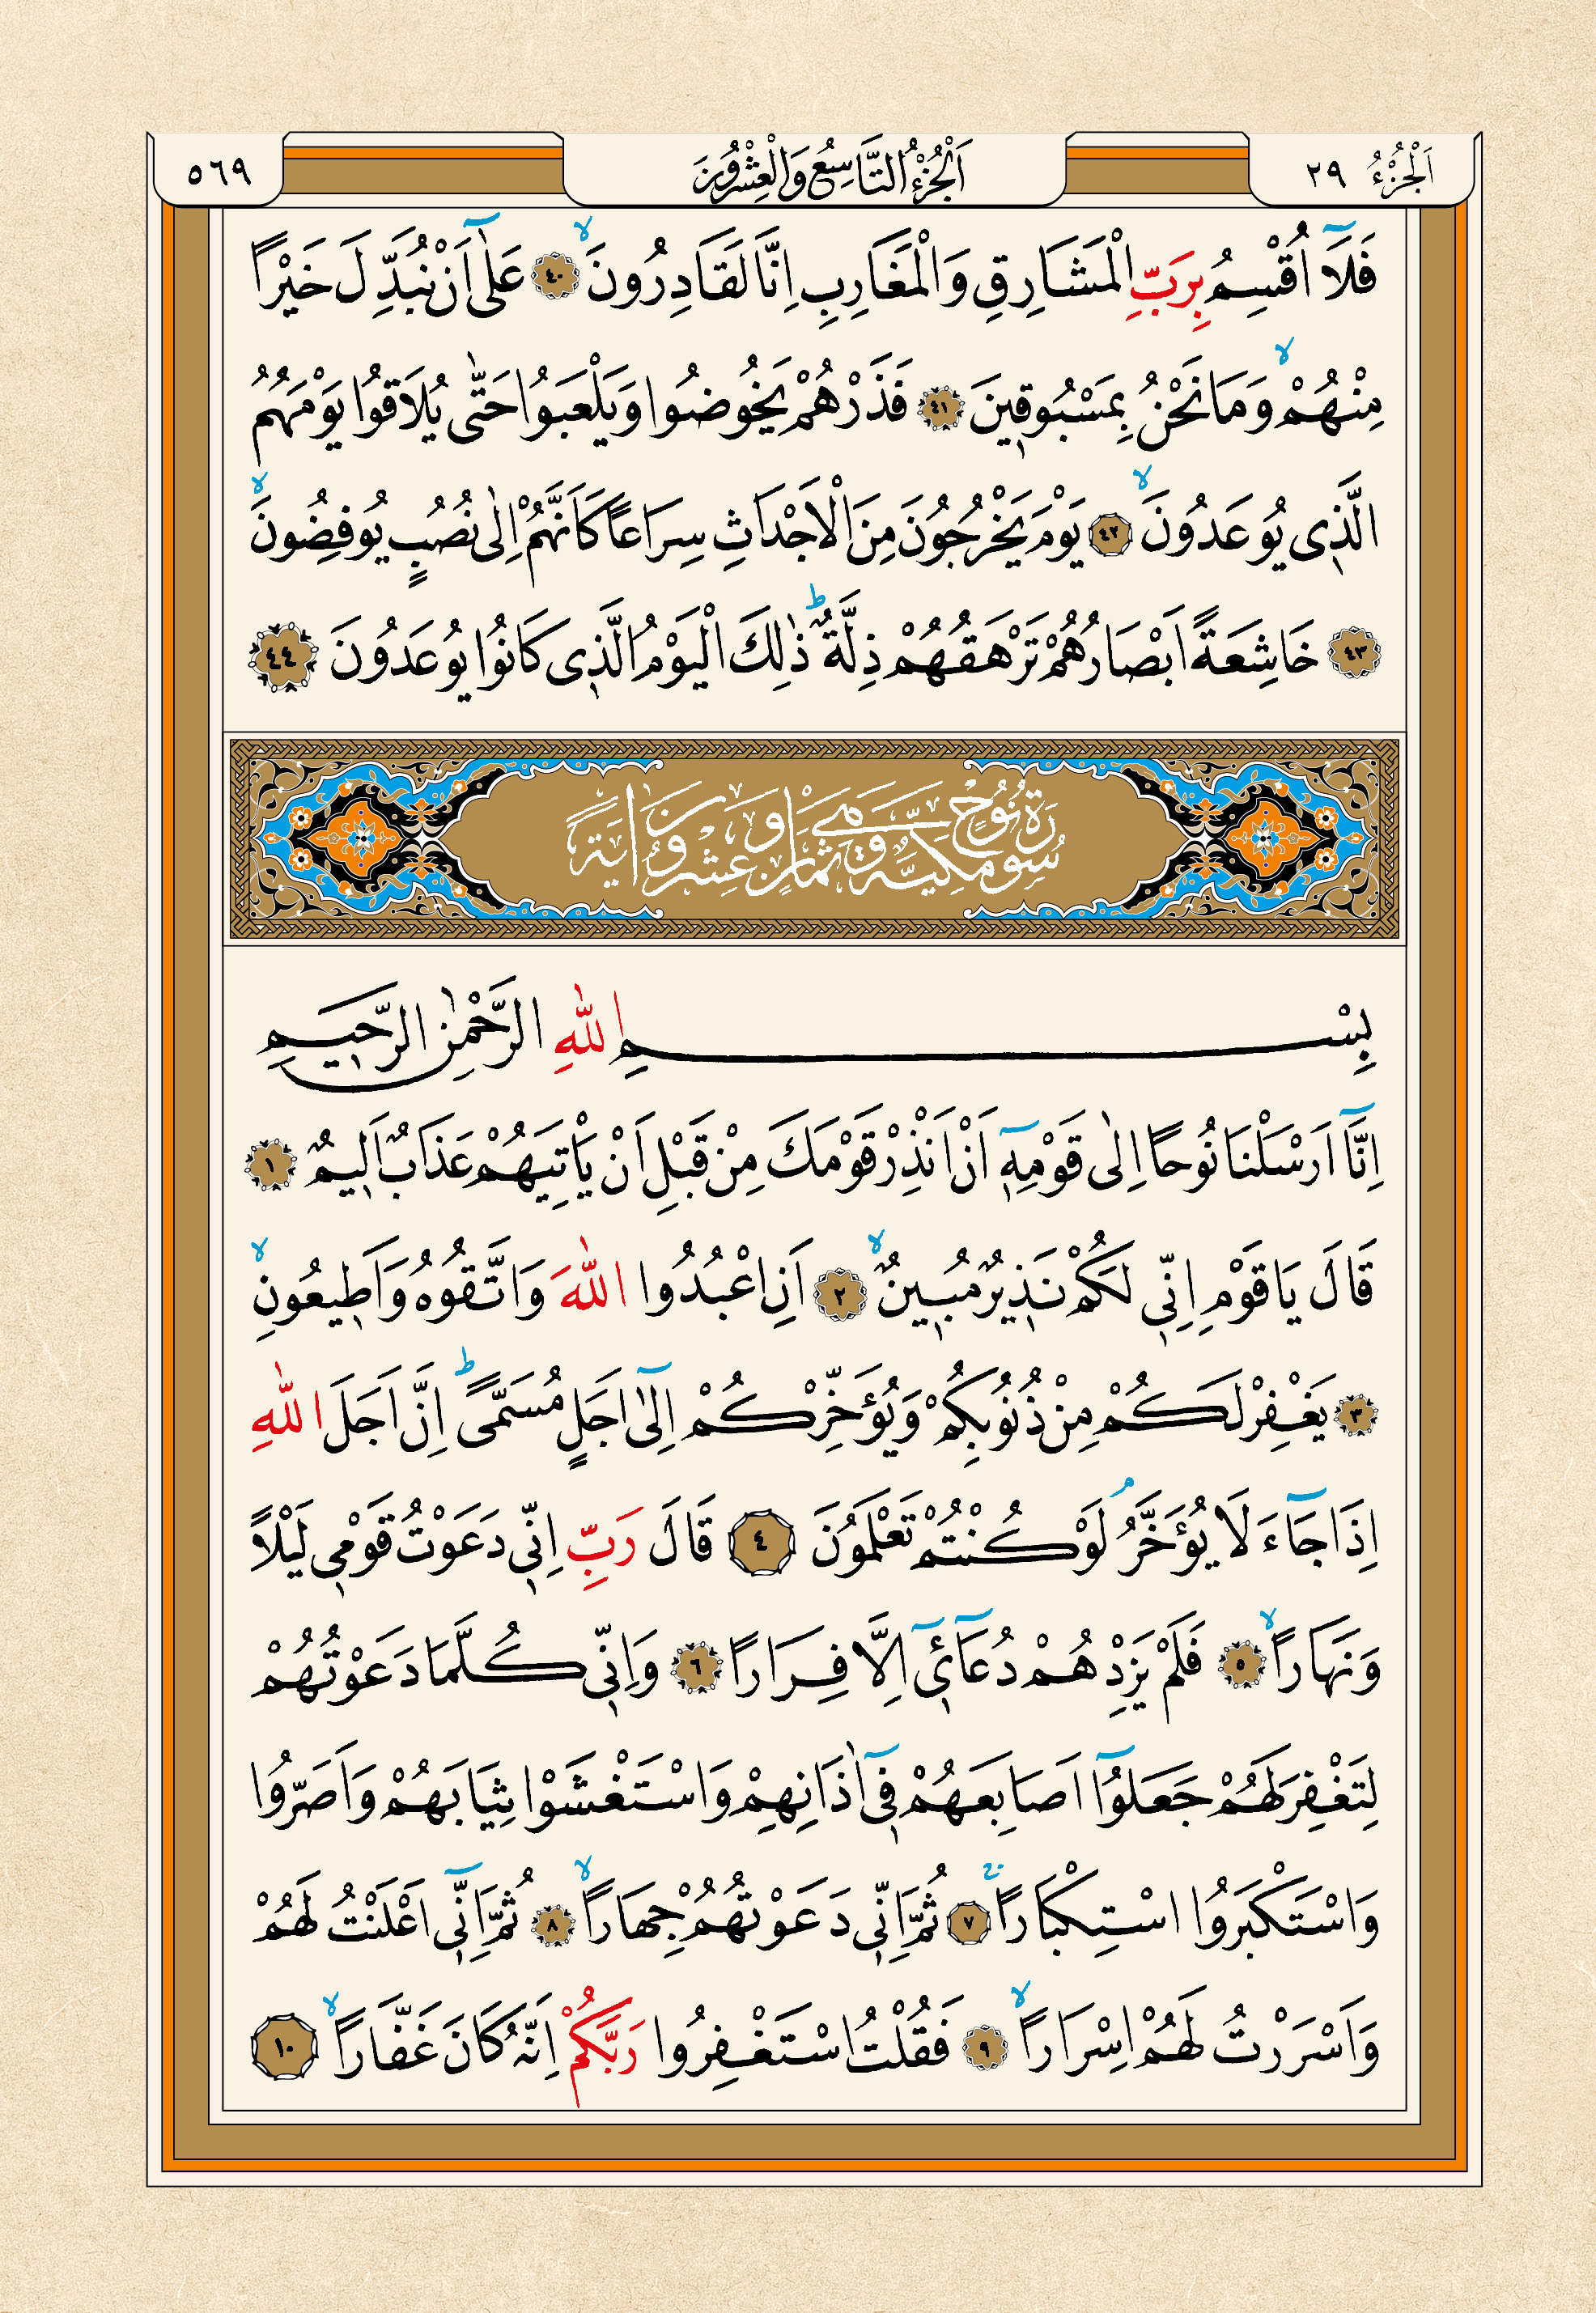 اَلْجُزْءُ ٢٩
اَلْجُزْءُ التَّاسِعُ وَالْعِشْرُونَ
٥٦٩
فَلَٓا اُقْسِمُ بِرَبِّ الْمَشَارِقِ وَالْمَغَارِبِ اِنَّا لَقَادِرُونَۙ ٤٠ عَلٰٓى اَنْ نُبَدِّلَ خَيْرًا
مِنْهُمْۙ وَمَا نَحْنُ بِمَسْبُوقٖينَ ٤١ فَذَرْهُمْ يَخُوضُوا وَيَلْعَبُوا حَتّٰى يُلَاقُوا يَوْمَهُمُ
الَّذٖى يُوعَدُونَۙ ٤٢ يَوْمَ يَخْرُجُونَ مِنَ الْاَجْدَاثِ سِرَاعًا كَاَنَّهُمْ اِلٰى نُصُبٍ يُوفِضُونَۙ
٤٣ خَاشِعَةً اَبْصَارُهُمْ تَرْهَقُهُمْ ذِلَّةٌؕ ذٰلِكَ الْيَوْمُ الَّذٖى كَانُوا يُوعَدُونَ ٤٤
سُورَةُ نُوحٍ مَكِّيَّةٌ وَهِيَ ثَمَانٍ وَعِشْرُونَ اٰيَةً
بِسْمِ اللّٰهِ الرَّحْمٰنِ الرَّحٖيمِ
اِنَّٓا اَرْسَلْنَا نُوحًا اِلٰى قَوْمِهٖٓ اَنْ اَنْذِرْ قَوْمَكَ مِنْ قَبْلِ اَنْ يَاْتِيَهُمْ عَذَابٌ اَلٖيمٌ ١
قَالَ يَا قَوْمِ اِنّٖى لَكُمْ نَذٖيرٌ مُبٖينٌۙ ٢ اَنِ اعْبُدُوا اللّٰهَ وَاتَّقُوهُ وَاَطٖيعُونِۙ
٣ يَغْفِرْ لَكُمْ مِنْ ذُنُوبِكُمْ وَيُؤَخِّرْكُمْ اِلٰٓى اَجَلٍ مُسَمًّىؕ اِنَّ اَجَلَ اللّٰهِ
اِذَا جَٓاءَ لَا يُؤَخَّرُۢ لَوْ كُنْتُمْ تَعْلَمُونَ ٤ قَالَ رَبِّ اِنّٖى دَعَوْتُ قَوْمٖى لَيْلًا
وَنَهَارًاۙ ٥ فَلَمْ يَزِدْهُمْ دُعَٓائٖٓى اِلَّا فِرَارًا ٦ وَاِنّٖى كُلَّمَا دَعَوْتُهُمْ
لِتَغْفِرَ لَهُمْ جَعَلُٓوا اَصَابِعَهُمْ فٖٓى اٰذَانِهِمْ وَاسْتَغْشَوْا ثِيَابَهُمْ وَاَصَرُّوا
وَاسْتَكْبَرُوا اسْتِكْبَارًاۚ ٧ ثُمَّ اِنّٖى دَعَوْتُهُمْ جِهَارًاۙ ٨ ثُمَّ اِنّٖٓى اَعْلَنْتُ لَهُمْ
وَاَسْرَرْتُ لَهُمْ اِسْرَارًاۙ ٩ فَقُلْتُ اسْتَغْفِرُوا رَبَّكُمْ اِنَّهُ كَانَ غَفَّارًاۙ ١٠